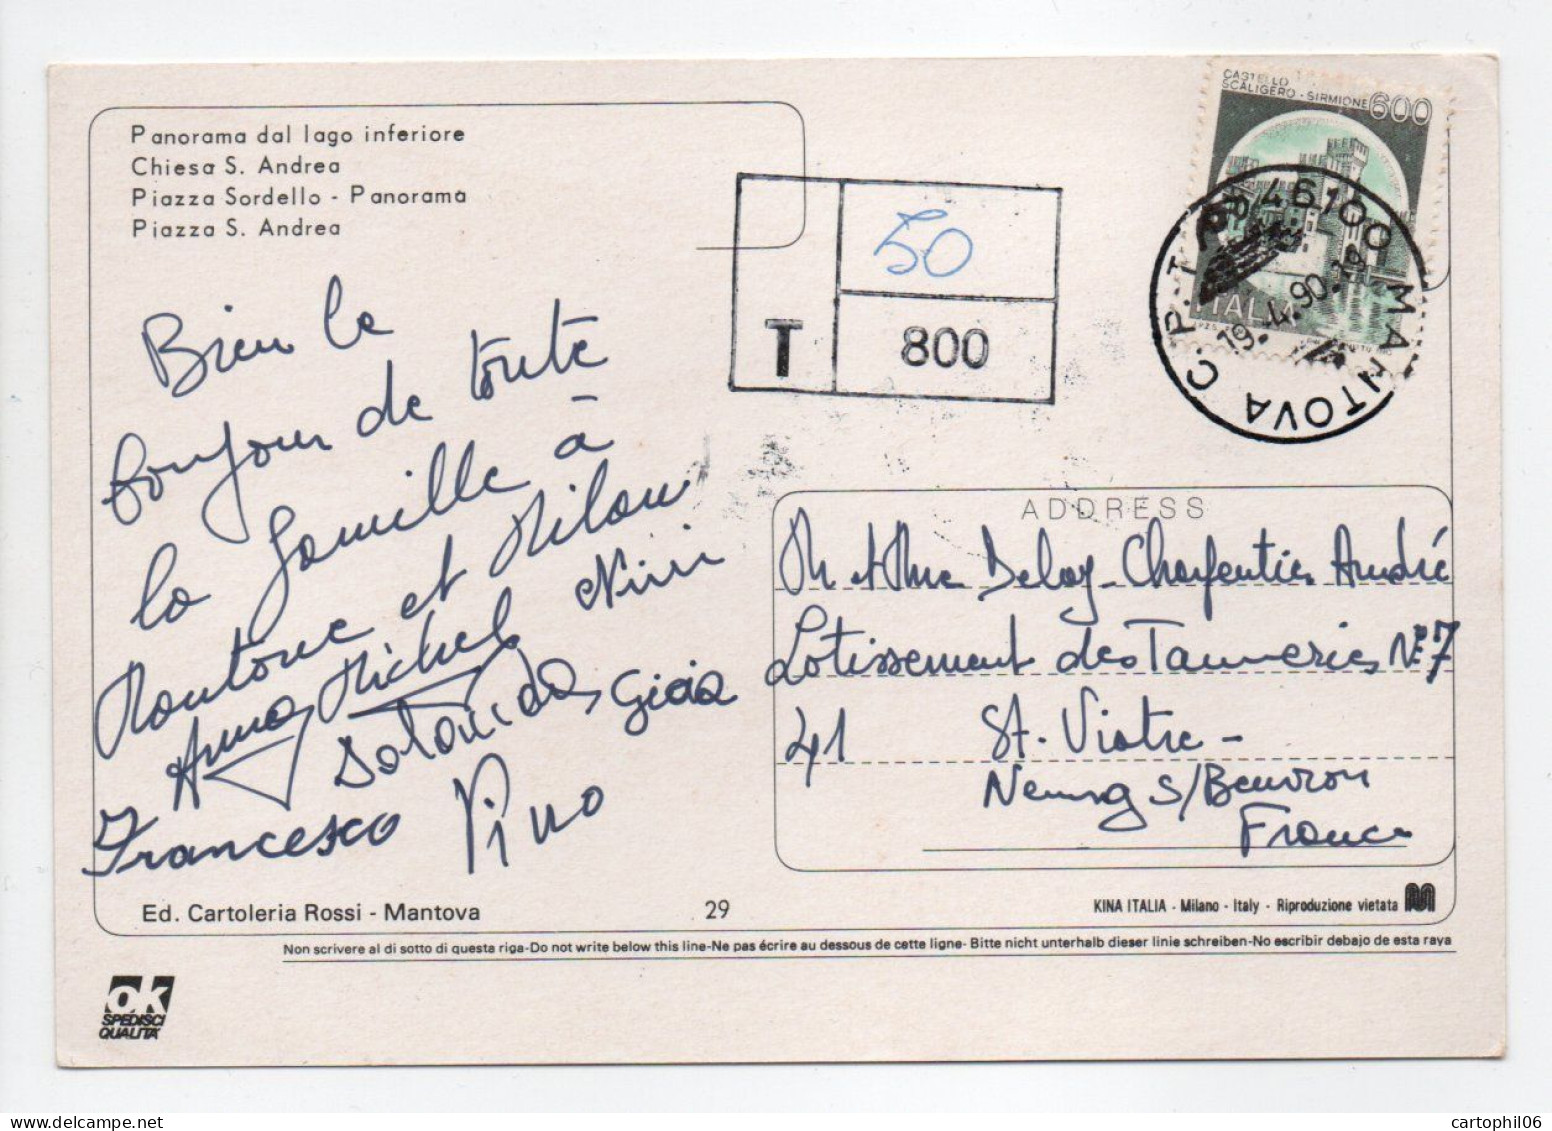 Panorama dal lago inferiore
Chiesa S. Andrea
Piazza Sordello - Panorama
Piazza S. Andrea
CASTELLO
SCALIGERO - SIRMIONE 600
ITALIA
46100 MANTOVA C.P.
19.-4.90.19
T
50
800
Bien le
bonjour de toute
la famille à
Mantoue et Milan
Anna Michel Nini
Gioia
Francesco Pino
ADDRESS
M et Mme Deloy-Charpentier André
Lotissement des Tanneries N° 7
41 St. Viatre -
Neung s/Beuvron
France
Ed. Cartoleria Rossi - Mantova
29
KINA ITALIA - Milano - Italy - Riproduzione vietata
Non scrivere al di sotto di questa riga-Do not write below this line-Ne pas écrire au dessous de cette ligne- Bitte nicht unterhalb dieser linie schreiben-No escribir debajo de esta raya
ok
SPEDISCI
QUALITA'
cartophil06